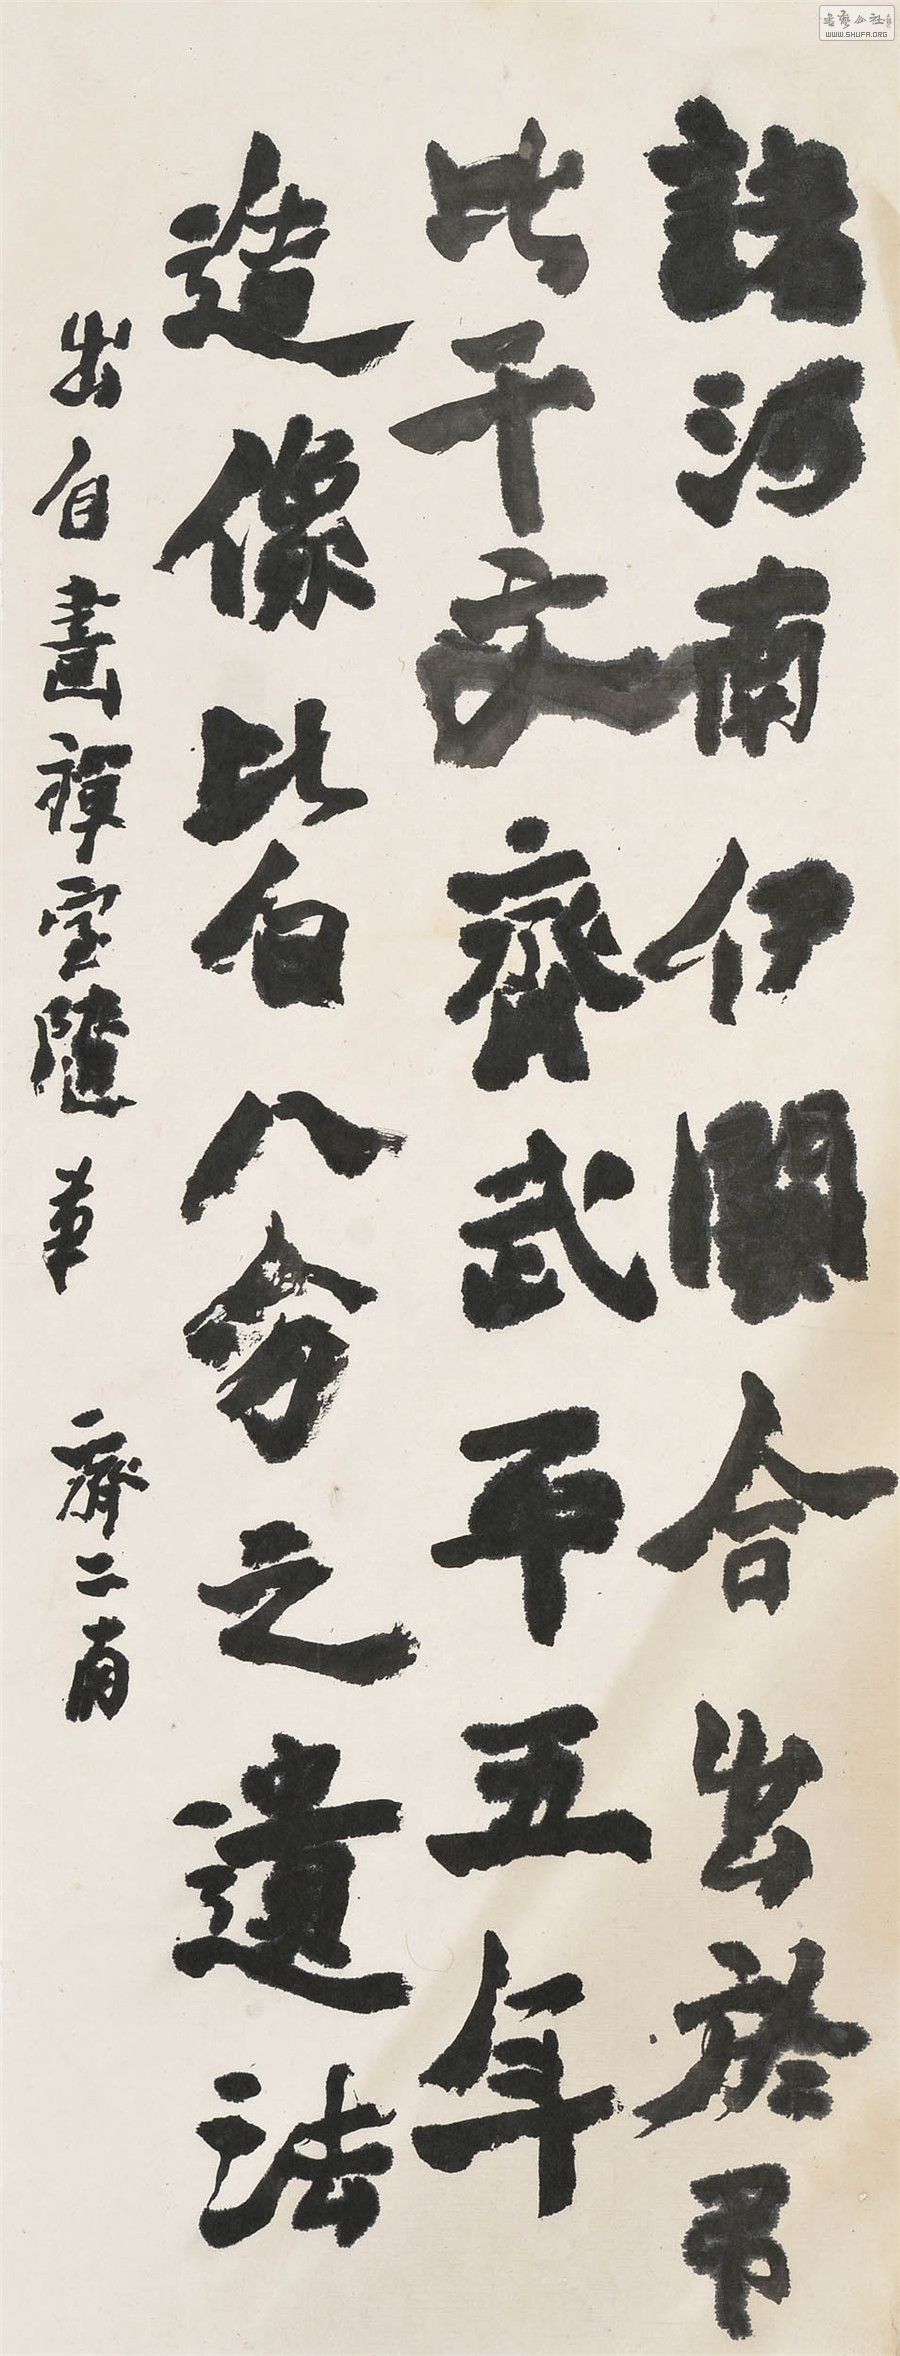 諸河南伊闕合出於弔
比干文齊武平五年
造像皆八分之遺法
出自畫禪室隨筆 齊二南
書藝公社
WWW.SHUFA.ORG